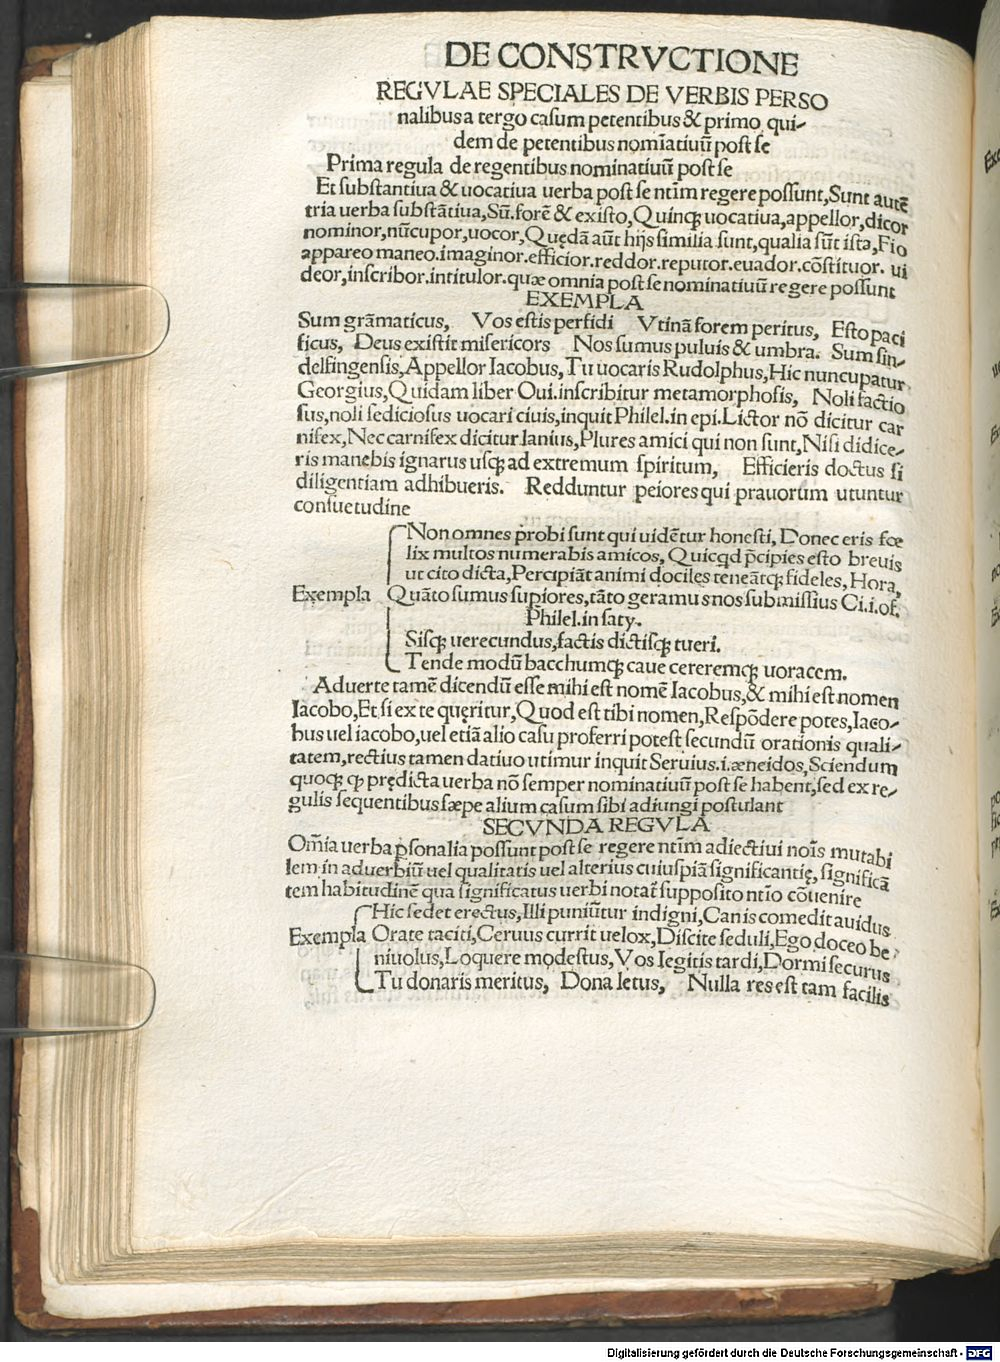 DE CONSTRVCTIONE
REGVLAE SPECIALES DE VERBIS PERSO
nalibus a tergo casum petentibus & primo qui-
dem de petentibus nomīatiuū post se
Prima regula de regentibus nominatiuū post se
Et substantiua & uocatiua uerba post se ntīm regere possunt, Sunt autē
tria uerba substātiua, Sū. forē & existo, Quinq̄ uocatiua, appellor, dicor
nominor, nūcupor, uocor, Quędā aūt hijs similia sunt, qualia sūt ista, Fio
appareo maneo. imaginor. efficior. reddor. reputor. euador. cōstituor. ui
deor, inscribor. intitulor. quæ omnia post se nominatiuū regere possunt
EXEMPLA
Sum grāmaticus, Vos estis perfidi Vtinā forem peritus, Esto paci
ficus, Deus existit misericors Nos sumus puluis & umbra. Sum sin-
delfingensis, Appellor Iacobus, Tu uocaris Rudolphus, Hic nuncupatur
Georgius, Quidam liber Oui. inscribitur metamorphosis, Noli factio
sus, noli sediciosus uocari ciuis, inquit Philel. in epi. Lictor nō dicitur car
nifex, Nec carnifex dicitur lanius, Plures amici qui non sunt, Nisi didice-
ris manebis ignarus usq̄ ad extremum spiritum, Efficieris doctus si
diligentiam adhibueris. Redduntur peiores qui prauorum utuntur
consuetudine
Non omnes probi sunt qui uidētur honesti, Donec eris fœ
lix multos numerabis amicos, Quicqd p̄cipies esto breuis
ut cito dicta, Percipiāt animi dociles teneātq̄ fideles, Hora,
Exempla Quāto sumus supiores, tāto geramus nos submissius Ci. i. of.
Philel. in saty.
Sisq̄ uerecundus, factis dictisq̄ tueri.
Tende modū bacchumq̄ caue cereremq̄ uoracem.
Aduerte tamē dicendū esse mihi est nomē Iacobus, & mihi est nomen
Iacobo, Et si ex te quęritur, Quod est tibi nomen, Respōdere potes, Iaco-
bus uel iacobo, uel etiā alio casu proferri potest secundū orationis quali-
tatem, rectius tamen datiuo utimur inquit Seruius. i. æneidos, Sciendum
quoq̄ ꝙ prędicta uerba nō semper nominatiuū post se habent, sed ex re-
gulis sequentibus sæpe alium casum sibi adiungi postulant
SECVNDA REGVLA
Om̄ia uerba ꝑsonalia possunt post se regere ntīm adiectiui nois̄ mutabi
lem in aduerbiū uel qualitatis uel alterius cuiuspiā significantię, significā
tem habitudinē qua significatus uerbi notat̄ supposito ntīo cōuenire
Hic sedet erectus, Illi puniūtur indigni, Canis comedit auidus
Exempla Orate taciti, Ceruus currit uelox, Discite seduli, Ego doceo be-
niuolus, Loquere modestus, Vos legitis tardi, Dormi securus
Tu donaris meritus, Dona letus, Nulla res est tam facilis
Digitalisierung gefördert durch die Deutsche Forschungsgemeinschaft - DFG